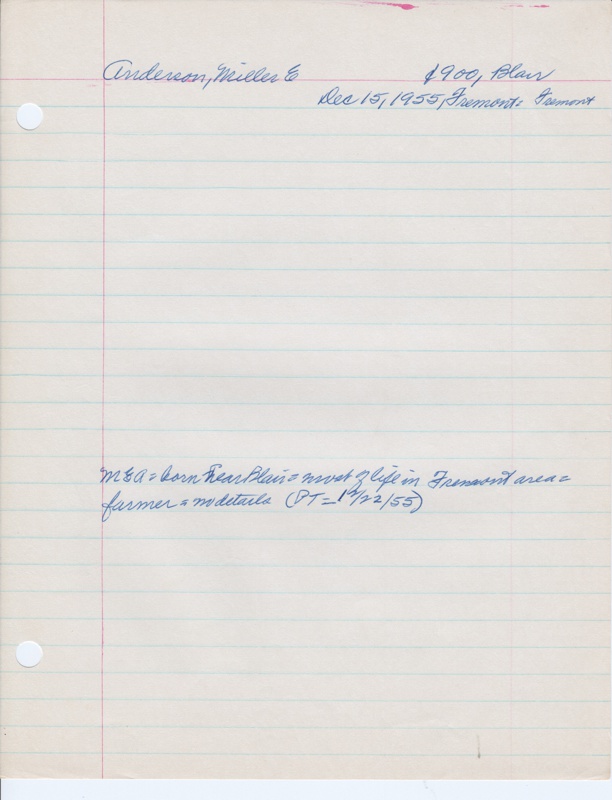 Anderson, Miller E 1900, Blair
Dec 15, 1955, Fremont = Fremont
MEA = born near Blair = most of life in Fremont area =
farmer = no details (PT = 12/22/55)